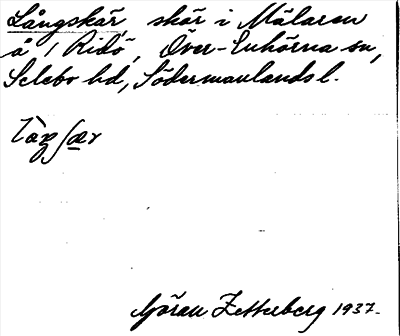 Långskär, skär i Mälaren
å / Ridö, Över-Enhörna sn,
Selebo hd, Södermanlands l.
Göran Zetterberg 1937.